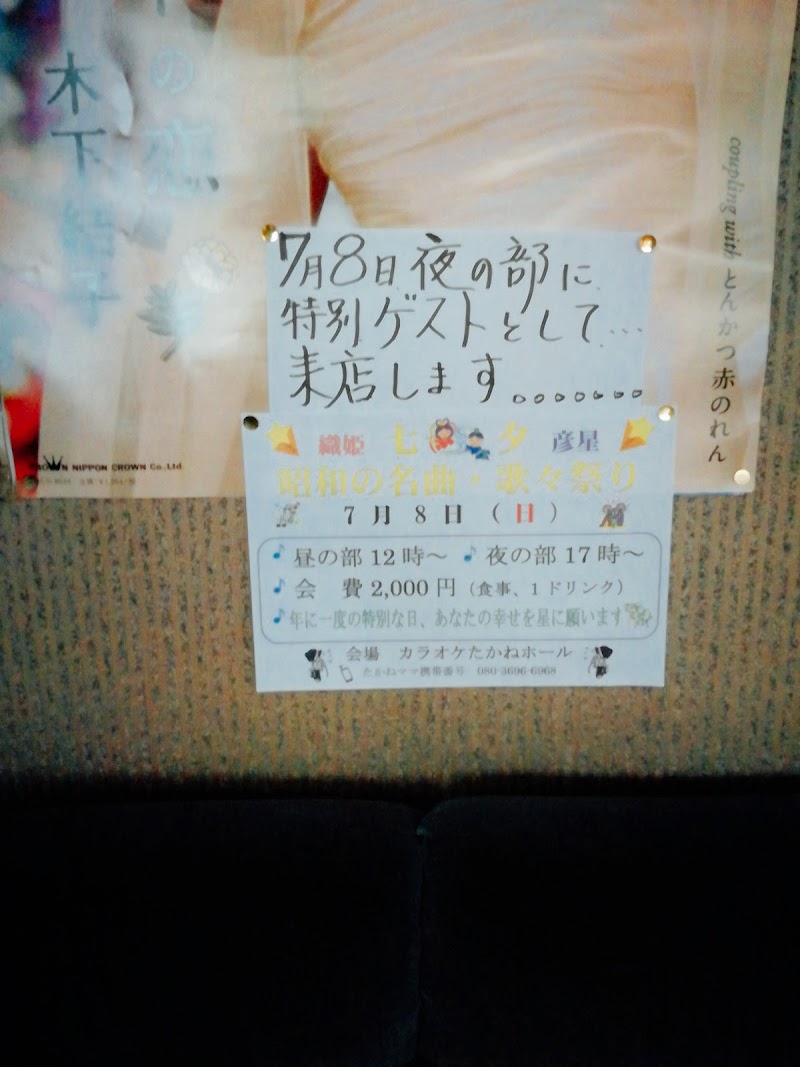 の恋
木下結子
coupling with とんかつ赤のれん
CROWN NIPPON CROWN Co.,Ltd.
7月8日夜の部に
特別ゲストとして...
来店します.......
織姫 七夕 彦星
昭和の名曲・歌々祭り
7月8日(日)
♪昼の部12時～ ♪夜の部17時～
♪会 費2,000円(食事、1ドリンク)
♪年に一度の特別な日、あなたの幸せを星に願います
会場 カラオケたかねホール
たかねママ携帯番号 080-3696-6968